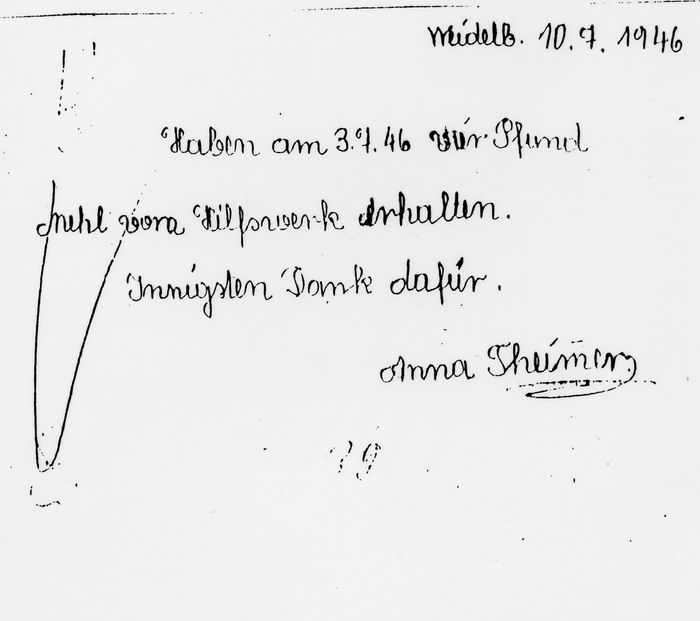 Heidelb. 10.7.1946
Haben am 3.7.46 vier Pfund
Mehl vom Hilfswerk erhalten.
Innigsten Dank dafür.
Anna Theimer